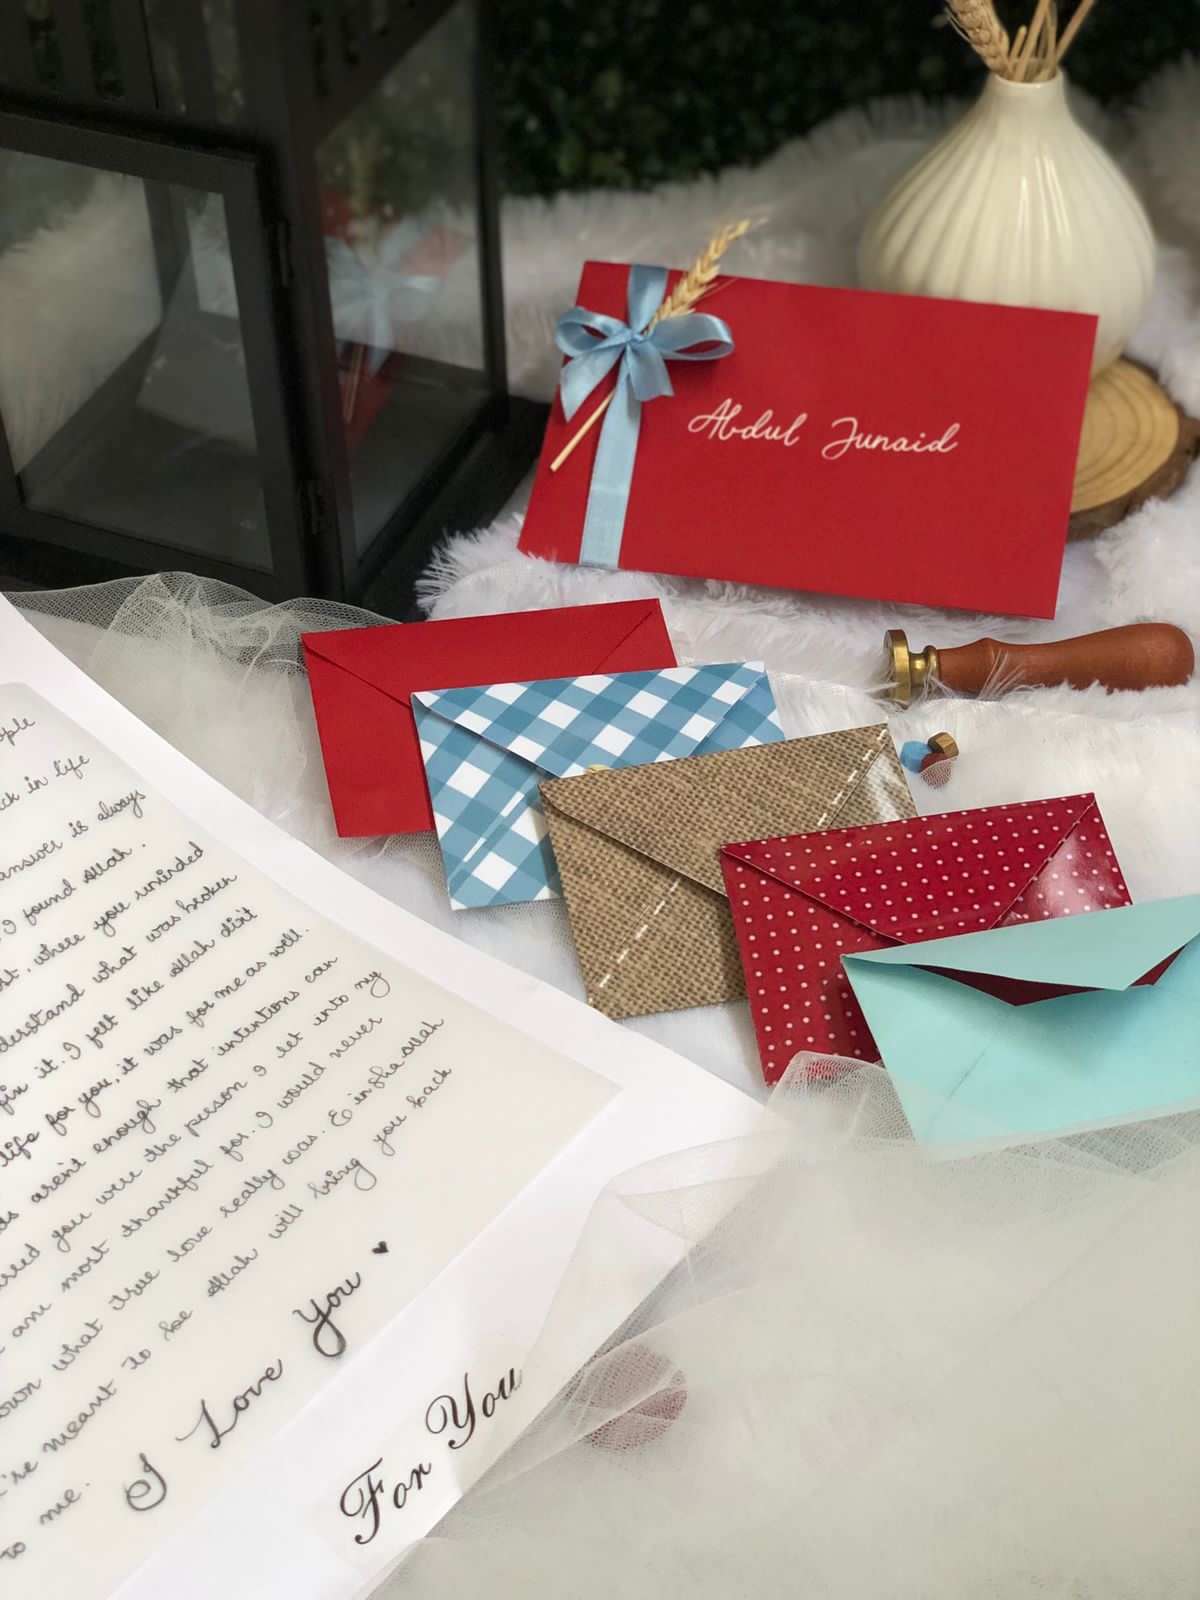 Abdul Junaid
ck in life
answer is always
I found Allah.
where you minded
derstand what was broken
fix it. I felt like Allah didn't
life for you, it was for me as well.
aren't enough that intentions can
you were the person I let into my
am most thankful for. I would never
what true love really was. & in sha allah
meant to be Allah will bring you back
to me.
I Love You
For You